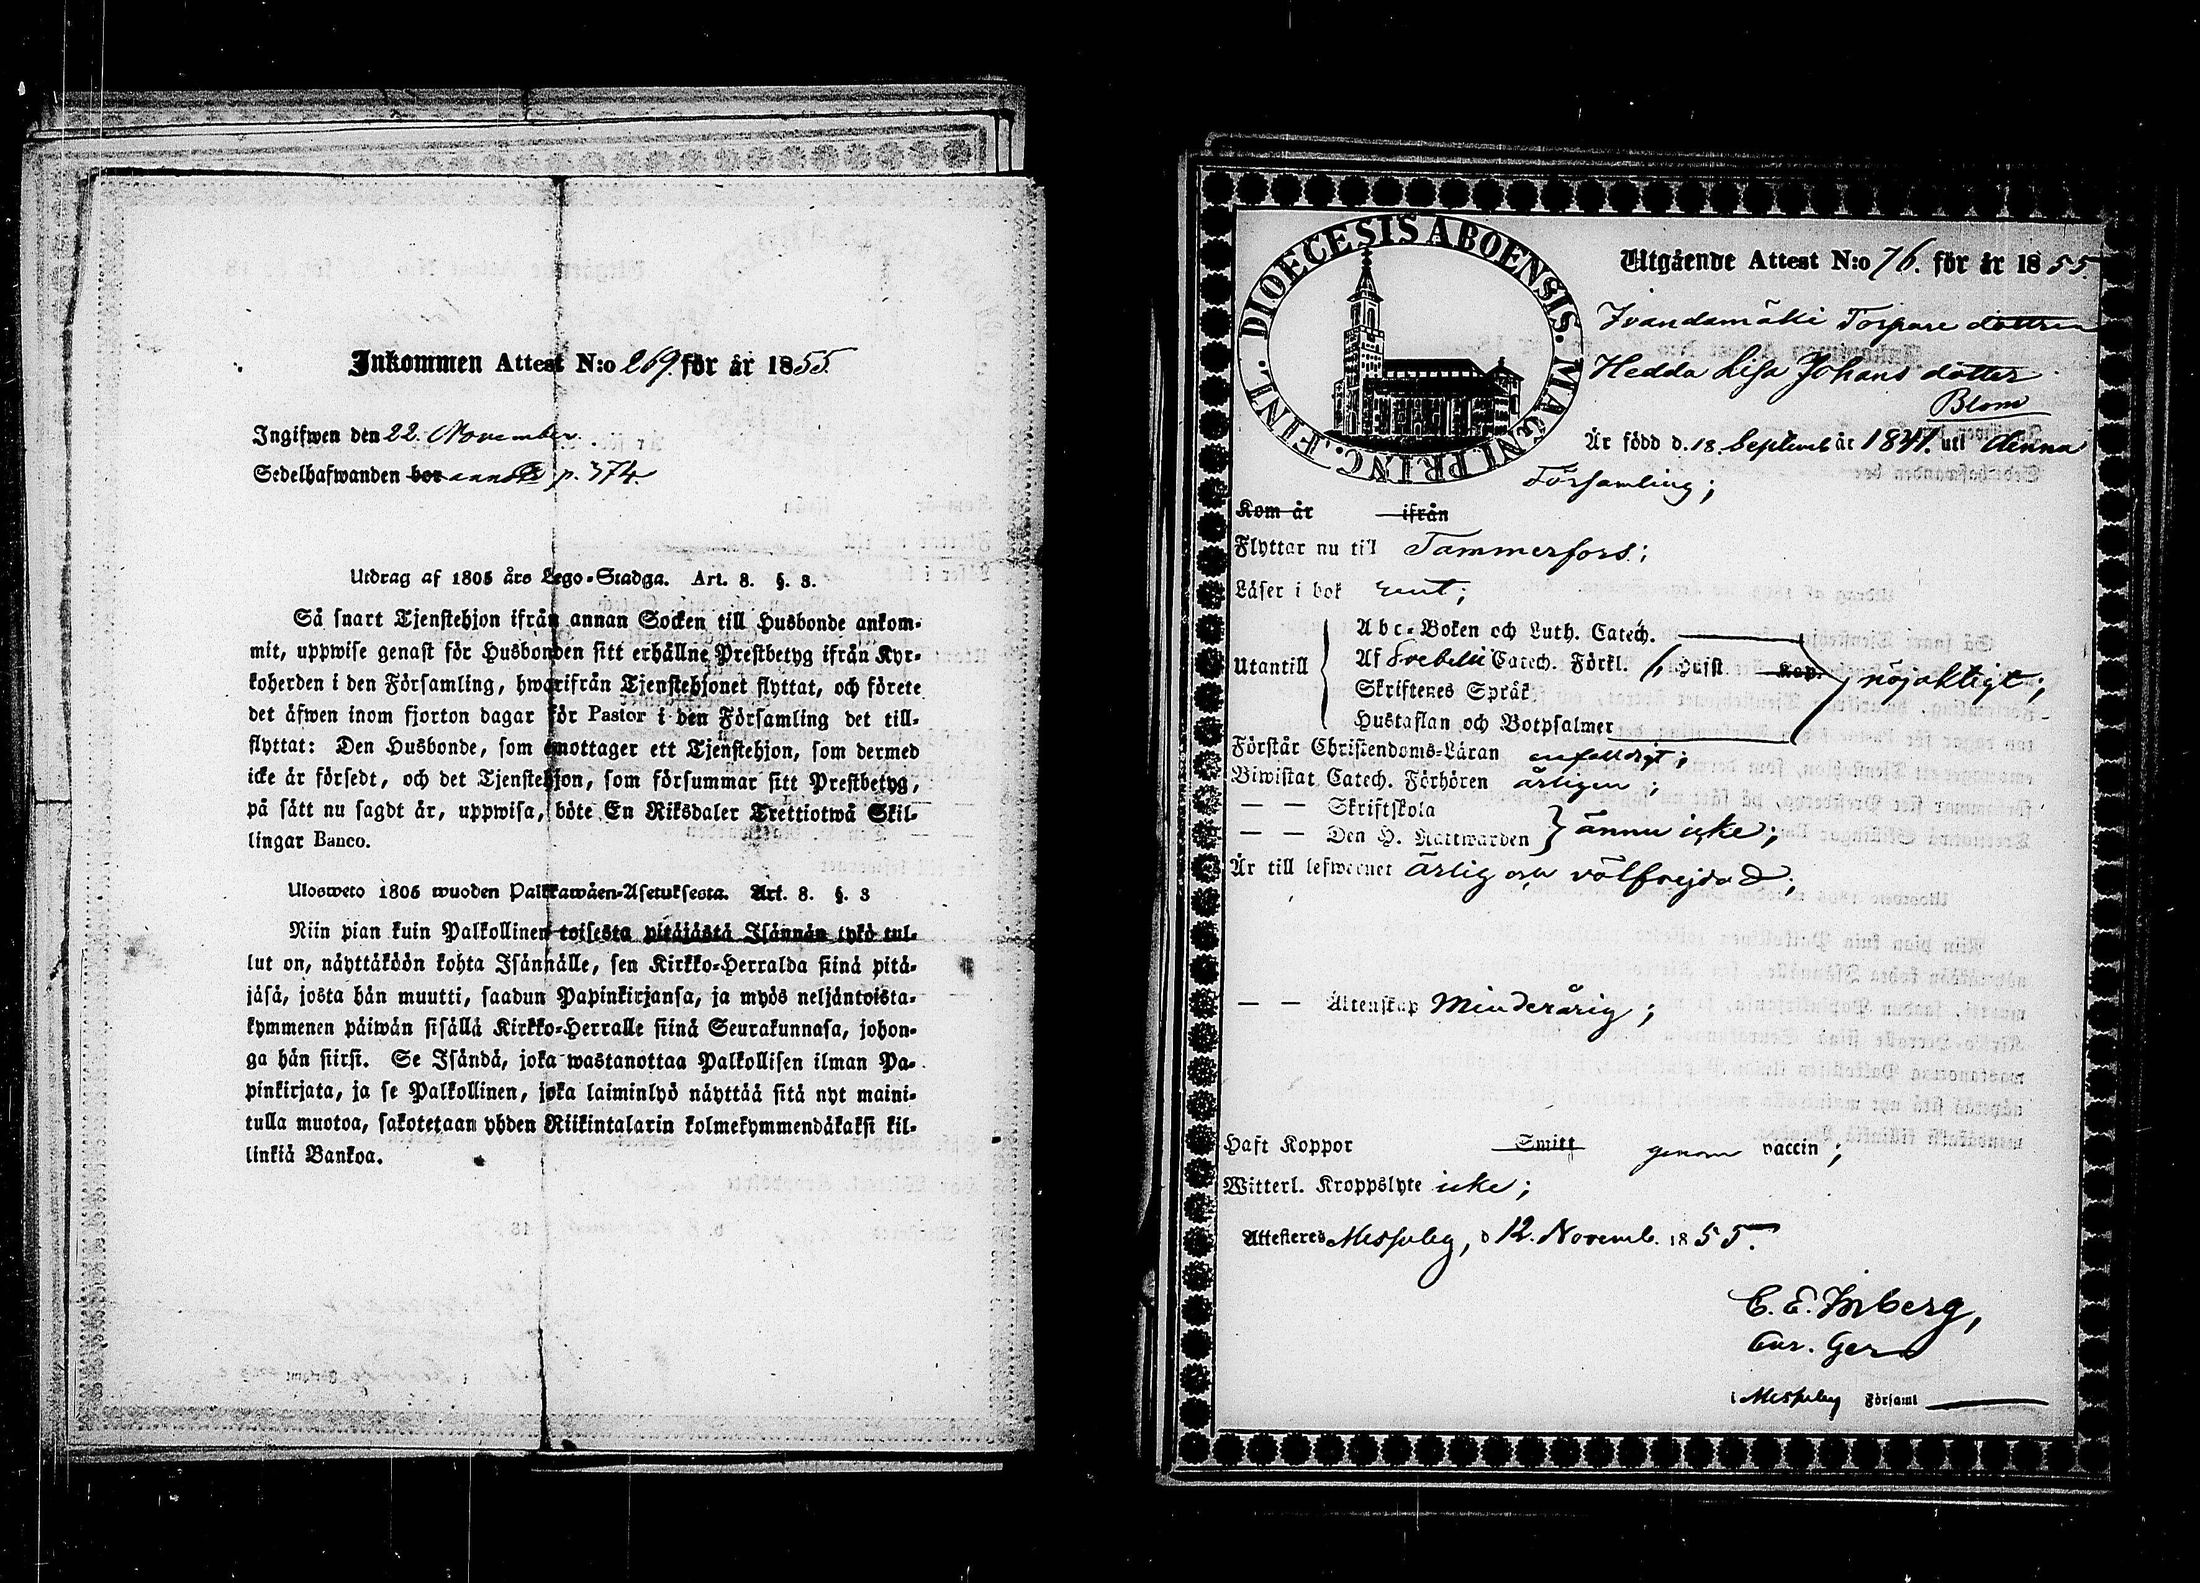 Inkommen Attest N:o 269. för år 1855.
Ingifwen den 22. November.
Sedelhafwanden bor p. 374.
Utdrag af 1805 års Lego-Stadga. Art. 8. §. 3.
Så snart Tjenstehjon ifrån annan Socken till Husbonde ankom-
mit, uppwise genast för Husbonden sitt erhållne Prestbetyg ifrån Kyr-
koherden i den Församling, hwarifrån Tjenstehjonet flyttat, och förete
det äfwen inom fjorton dagar för Pastor i den Församling det till-
flyttat: Den Husbonde, som emottager ett Tjenstehjon, som dermed
icke är försedt, och det Tjenstehjon, som försummar sitt Prestbetyg,
på sätt nu sagdt är, uppwisa, böte En Riksdaler Trettiotwå Skil-
lingar Banco.
Ulosweto 1805 wuoden Palkkawäen-Asetuksesta. Art. 8. §. 3
Niin pian kuin Palkollinen toisesta pitäjästä Isännän tykö tul-
lut on, näyttäköön kohta Isännälle, sen Kirkko-Herralda siinä pitä-
jäsä, josta hän muutti, saadun Papinkirjansa, ja myös neljäntoista-
kymmenen päiwän sisällä Kirkko-Herralle siinä Seurakunnasa, johon-
ga hän siirsi. Se Isändä, joka wastanottaa Palkollisen ilman Pa-
pinkirjata, ja se Palkollinen, joka laiminlyö näyttää sitä nyt maini-
tulla muotoa, sakotetaan yhden Riikintalarin kolmekymmendäkaksi kil-
linkiä Bankoa.
DIOECESIS ABOENSIS. MAGNI PRINC. FINL.
Utgående Attest N:o 76. för år 1855.
Torpare dottren
Hedda Lisa Johans dotter
Blom
Är född d. 18. Septemb år 1841. uti denna
Församling;
Kom år ifrån
Flyttar nu till Tammerfors;
Läser i bok rent;
Utantill Abc-Boken och Luth. Catech.
Af Svebelii Catech. Förkl. Husst Kap. nöjaktigt;
Skriftenes Språk
Hustaflan och Botpsalmer
Förstår Christendoms-Läran enfalldigt;
Biwistat Catech. Förhören årligen;
— — Skriftskola
— — Den H. Nattwarden } ännu icke;
Är till lefwernet ärlig och välfrejdad;
— — Äktenskap Minderårig;
Haft Koppor Smitt genom vaccin;
Witterl. Kroppslyte icke;
Attesteres Messuby, d 12. Novemb. 1855.
C. E. Inberg,
Cur. Ger
i Messuby Församl